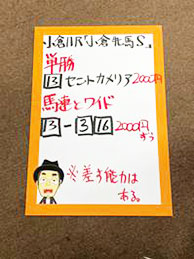 小倉11R「小倉牝馬S.」
単勝
13 セントカメリア 2000円
馬連とワイド
13-3 16 2000円ずつ
※差す能力は
ある。